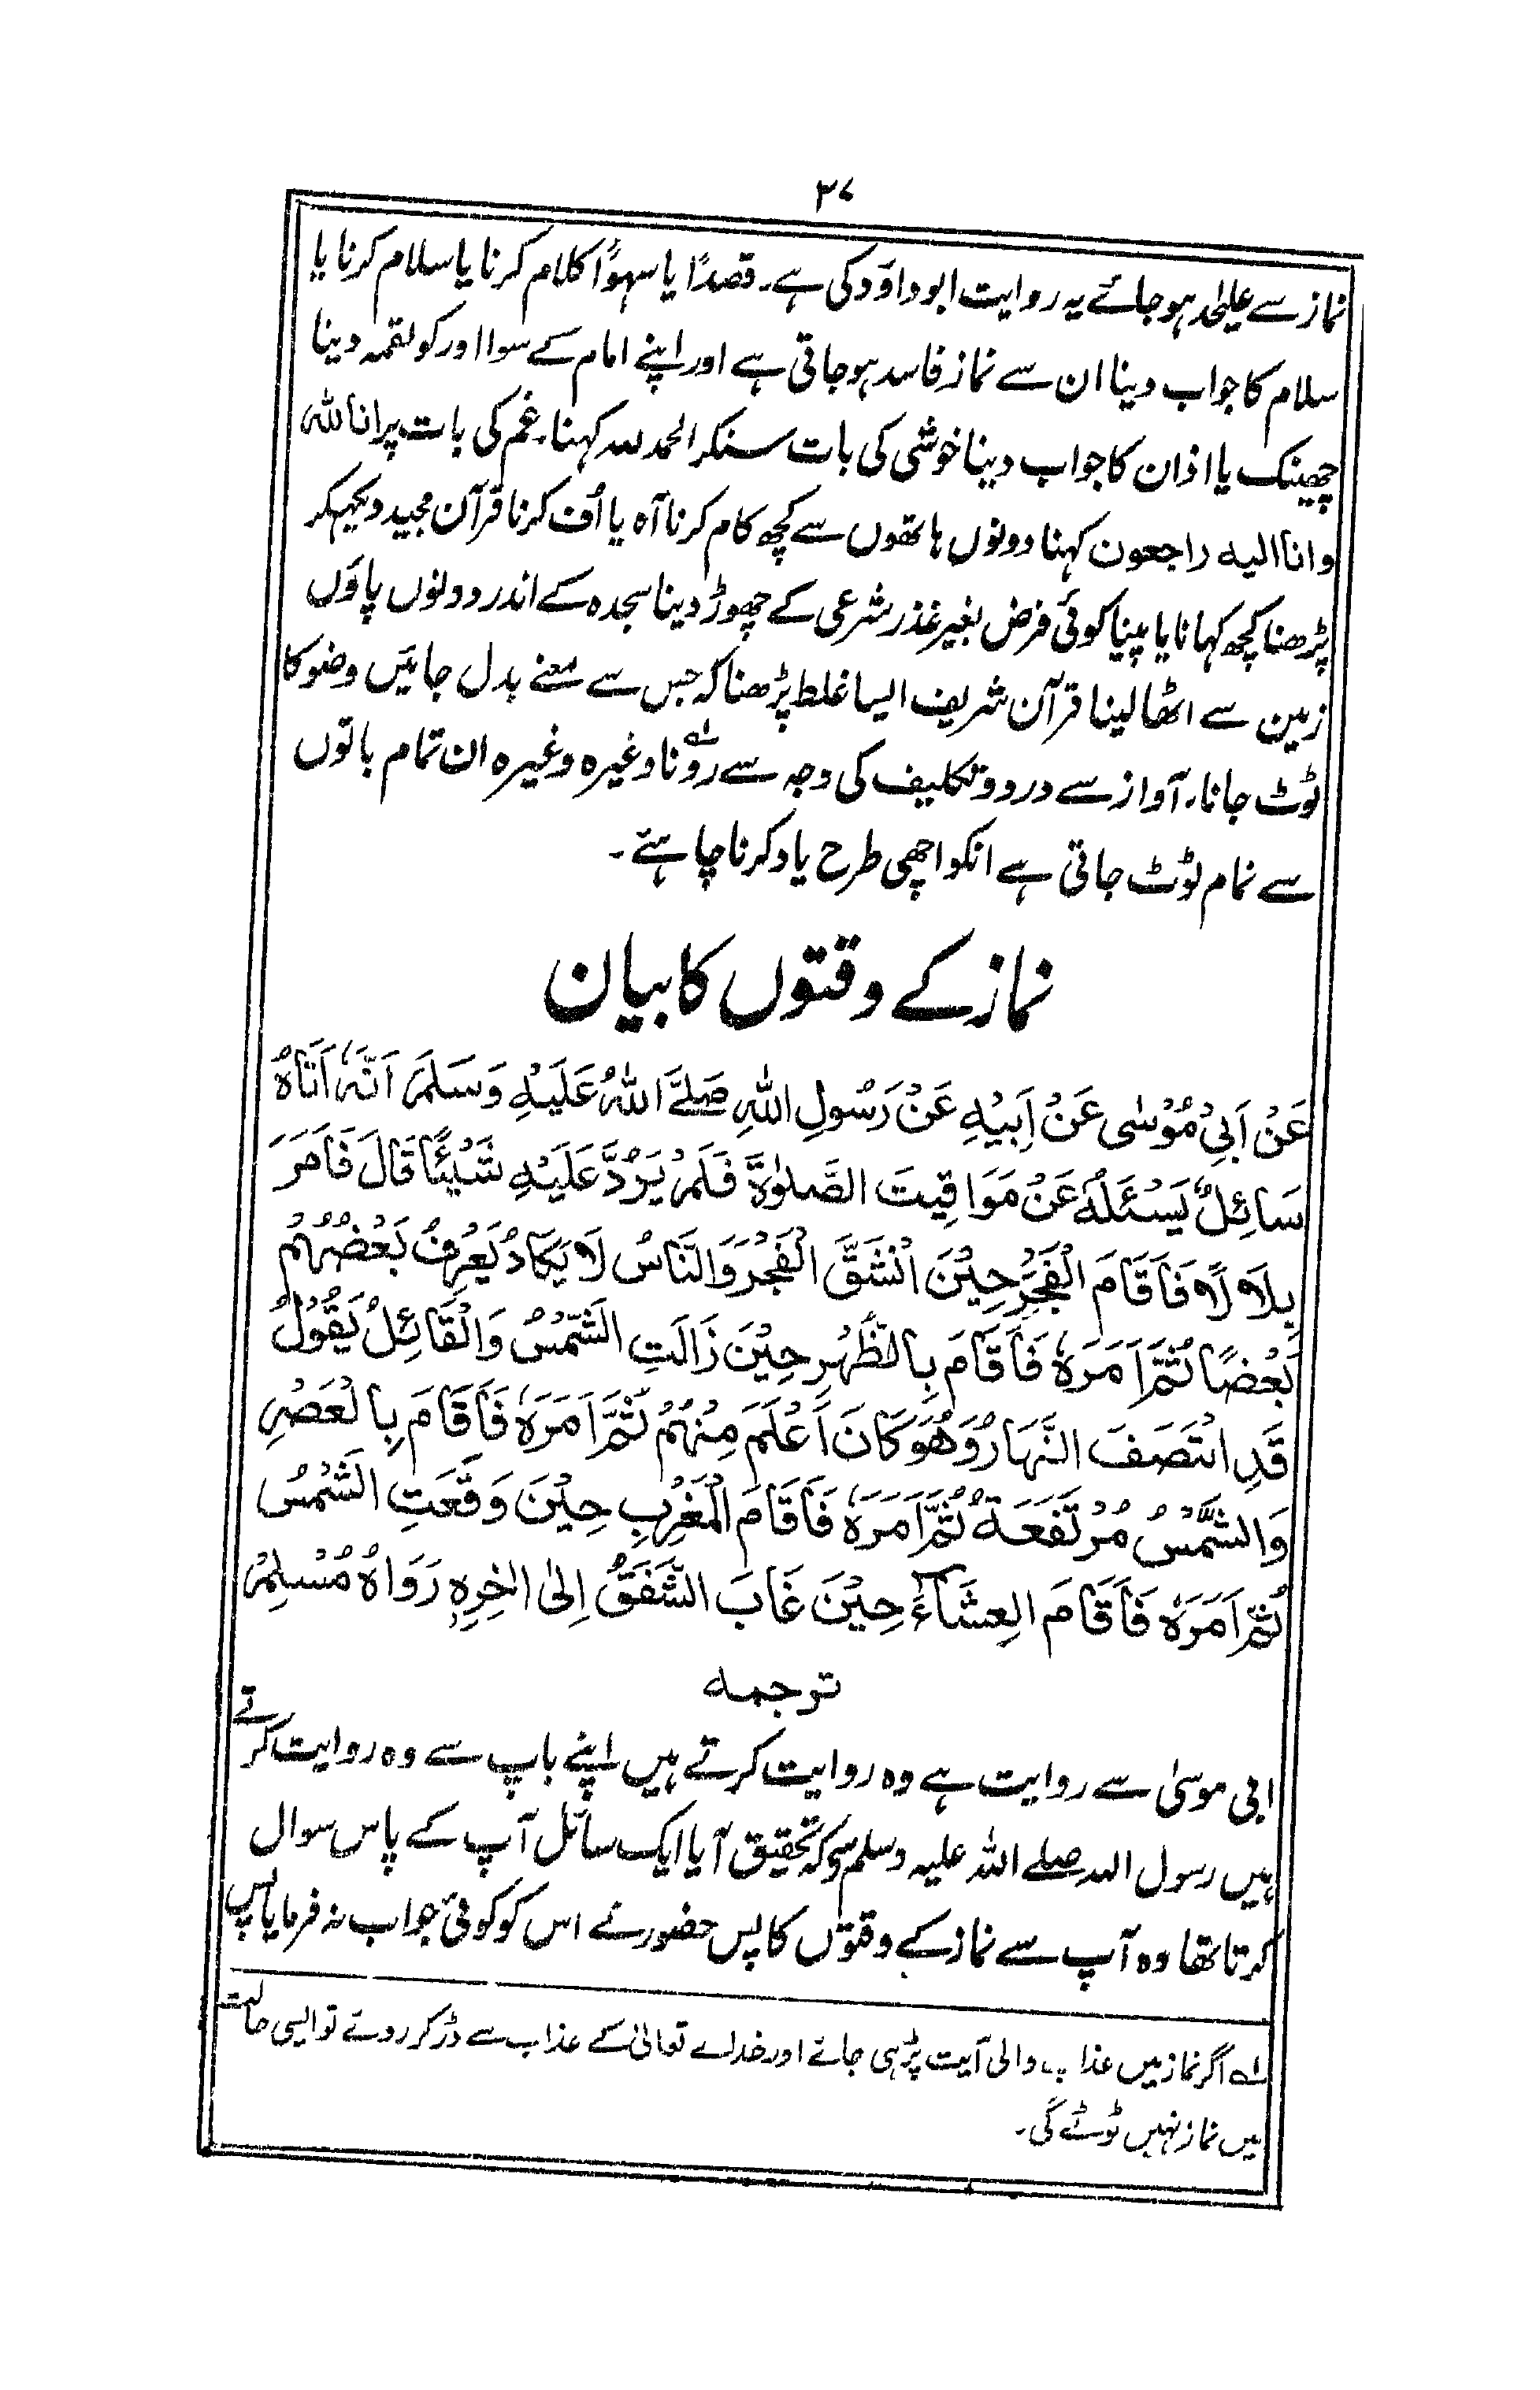 ۳۷
نماز سے علیٰحدہ ہو جائے یہ روایت ابوداؤد کی ہے۔ قصداً یا سہواً کلام کرنا یا سلام کرنا یا
سلام کا جواب دینا ان سے نماز فاسد ہو جاتی ہے اور اپنے امام کے سوا اور کو لقمہ دینا
چھینک یا اذان کا جواب دینا خوشی کی بات سنکر الحمد للہ کہنا۔ غم کی بات پر انا للہ
و انا الیہ راجعون کہنا دونوں ہاتھوں سے کچھ کام کرنا آہ یا اُف کرنا قرآن مجید دیکھکر
پڑھنا کچھ کہانا یا پینا کوئی فرض بغیر عذر شرعی کے چھوڑ دینا سجدہ کے اندر دونوں پاؤں
زمین سے اٹھا لینا قرآن شریف ایسا غلط پڑھنا کہ جس سے معنے بدل جائیں وضو کا
ٹوٹ جانا۔ آواز سے درد و تکلیف کی وجہ سے رونا ؎۱ وغیرہ وغیرہ ان تمام باتوں
سے نمام ٹوٹ جاتی ہے انکو اچھی طرح یاد کرنا چاہئے۔
نماز کے وقتوں کا بیان
عَنْ اَبِیْ مُوْسٰی عَنْ اَبِیْهِ عَنْ رَسُولِ اللّٰهِ صَلَّے اللّٰهُ عَلَیْهِ وَسَلَّمَ اَنَّهٗ اَتَاهُ
سَائِلٌ یَسْئَلُهٗ عَنْ مَوَاقِیتَ الصَّلٰوةَ فَلَمْ یَرُدَّ عَلَیْهِ شَیْئًا قَالَ فَاَمَرَ
بِلَالًا فَاَقَامَ الْفَجْرَ حِیْنَ انْشَقَّ الْفَجْرُ وَالنَّاسُ لَا یَکَادُ یَعْرِفُ بَعْضُهُمْ
بَعْضًا ثُمَّ اَمَرَهٗ فَاَقَامَ بِالظُّهْرِ حِیْنَ زَالَتِ الشَّمْسُ وَالْقَائِلُ یَقُوْلُ
قَدِ انْتَصَفَ النَّهَارُ وَهُوَ کَانَ اَعْلَمَ مِنْهُمْ ثُمَّ اَمَرَهٗ فَاَقَامَ بِالْعَصْرِ
وَالشَّمْسُ مُرْتَفَعَةٌ ثُمَّ اَمَرَهٗ فَاَقَامَ الْمَغْرِبِ حِیْنَ وَقَعَتِ الشَّمْسُ
ثُمَّ اَمَرَهٗ فَاَقَامَ الْعِشَاءَ حِیْنَ غَابَ الشَّفَقُ اِلیٰ اٰخِرِهٖ رَوَاهُ مُسْلِمٌ
ترجمہ
ابی موسیٰ سے روایت ہے وہ روایت کرتے ہیں اپنے باپ سے وہ روایت کرتے
ہیں رسول اللہ صلے اللہ علیہ وسلم سو کہ تحقیق آیا ایک سائل آپ کے پاس سوال
کرتا تھا وہ آپ سے نماز کے وقتوں کا پس حضور نے اس کو کوئی جواب نہ فرمایا پس
؎۱ اگر نماز میں عذاب والی آیت پڑہی جائے اور خدائے تعالیٰ کے عذاب سے ڈر کر روئے تو ایسی حالت
میں نماز نہیں ٹوٹے گی۔